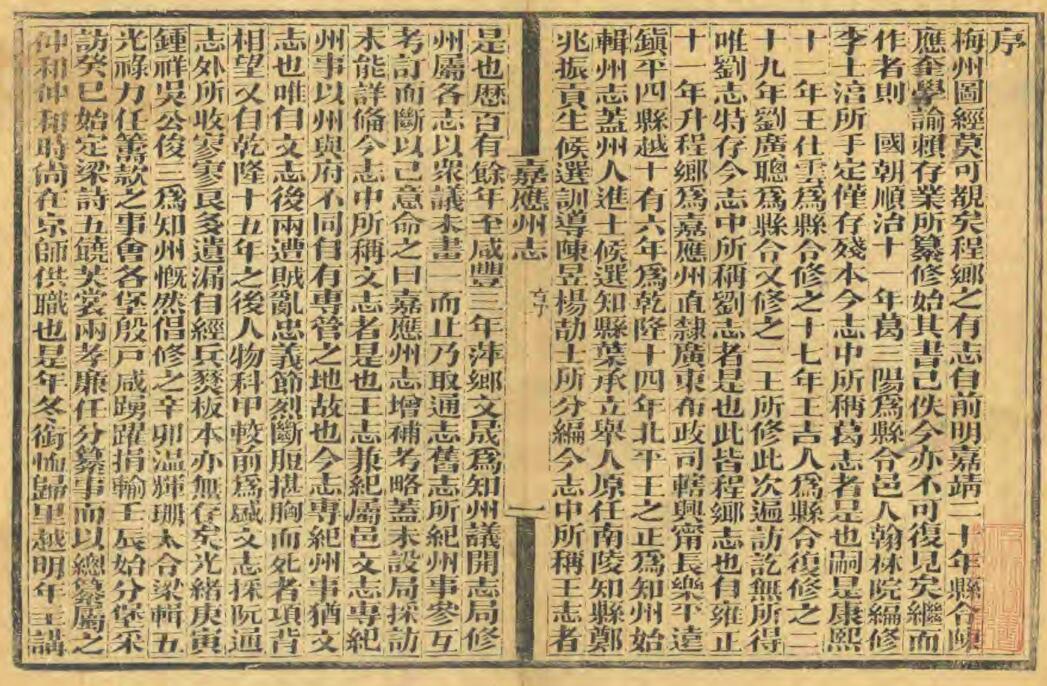 序
梅州圖經莫可覩矣程鄉之有志自前明嘉靖二十年縣令陳
應奎學諭賴存業所纂修始其書已佚今亦不可復見矣繼而
作者則　國朝順治十一年葛三陽爲縣令邑人翰林院編修
李士淳所手定僅存殘本今志中所稱葛志者是也嗣是康熙
十二年王仕雲爲縣令修之十七年王吉人爲縣令復修之二
十九年劉廣聰爲縣令又修之二王所修此次遍訪訖無所得
唯劉志特存今志中所稱劉志者是也此皆程鄉志也自雍正
十一年升程鄉爲嘉應州直隸廣東布政司轄興甯長樂平遠
鎮平四縣越十有六年爲乾隆十四年北平王之正爲知州始
輯州志蓋州人進士候選知縣葉承立舉人原任南陵知縣鄭
兆振貢生候選訓導陳昱楊劼士所分編今志中所稱王志者
嘉應州志
序
一
是也歷百有餘年至咸豐三年萍鄉文晟爲知州議開志局修
州屬各志以衆議未畫一而止乃取通志舊志所紀州事參互
考訂而斷以己意命之曰嘉應州志增補考略蓋未設局採訪
未能詳備今志中所稱文志者是也王志兼紀屬邑文志專紀
州事以州與府不同自有專管之地故也今志專紀州事猶文
志也唯自文志後兩遭賊亂忠義節烈斷脰椹胸而死者項背
相望又自乾隆十五年之後人物科甲較前爲盛文志採阮通
志外所收寥寥艮多遺漏自經兵燹板本亦無存矣光緒庚寅
鍾祥吳公俊三爲知州慨然倡修之辛卯温輝珊太令梁輯五
光祿力任籌款之事會各堡殷戸咸踴躍捐輸壬辰始分堡采
訪癸巳始定梁詩五饒芙裳兩孝廉任分纂事而以總纂屬之
仲和仲和時尚在京師供職也是年冬銜恤歸里越明年主講